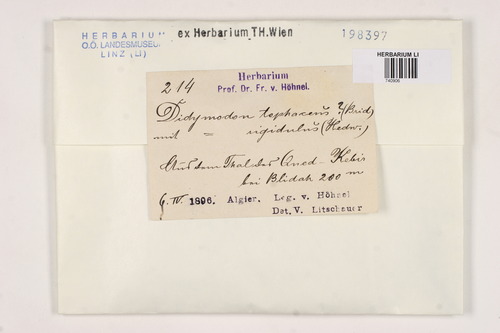 HERBARIUM
O.Ö. LANDESMUSEUM
LINZ (LI)
ex Herbarium TH.Wien
198397
HERBARIUM LI
740906
214
Herbarium
Prof. Dr. Fr. v. Höhnel.
Didymodon tophaceus ? (Brid)
mit = rigidulus (Hedw.)
Aus dem Thal des Oued-Kebir
bei Blidah 200 m
9. IV. 1896. Algier. Leg. v. Höhnel
Det. V. Litschauer